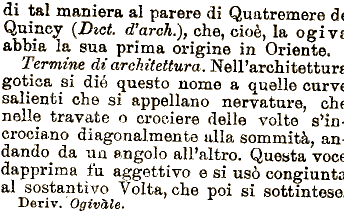 di tal maniera al parere di Quatremere de
Quincy (Dict. d'arch.), che, cioè, la ogiva
abbia la sua prima origine in Oriente.
Termine di architettura. Nell'architettura
gotica si dié questo nome a quelle curve
salienti che si appellano nervature, che
nelle travate o crociere delle volte s'in-
crociano diagonalmente alla sommità, an-
dando da un angolo all'altro. Questa voce
dapprima fu aggettivo e si usò congiunta
al sostantivo Volta, che poi si sottintese.
Deriv. Ogivàle.